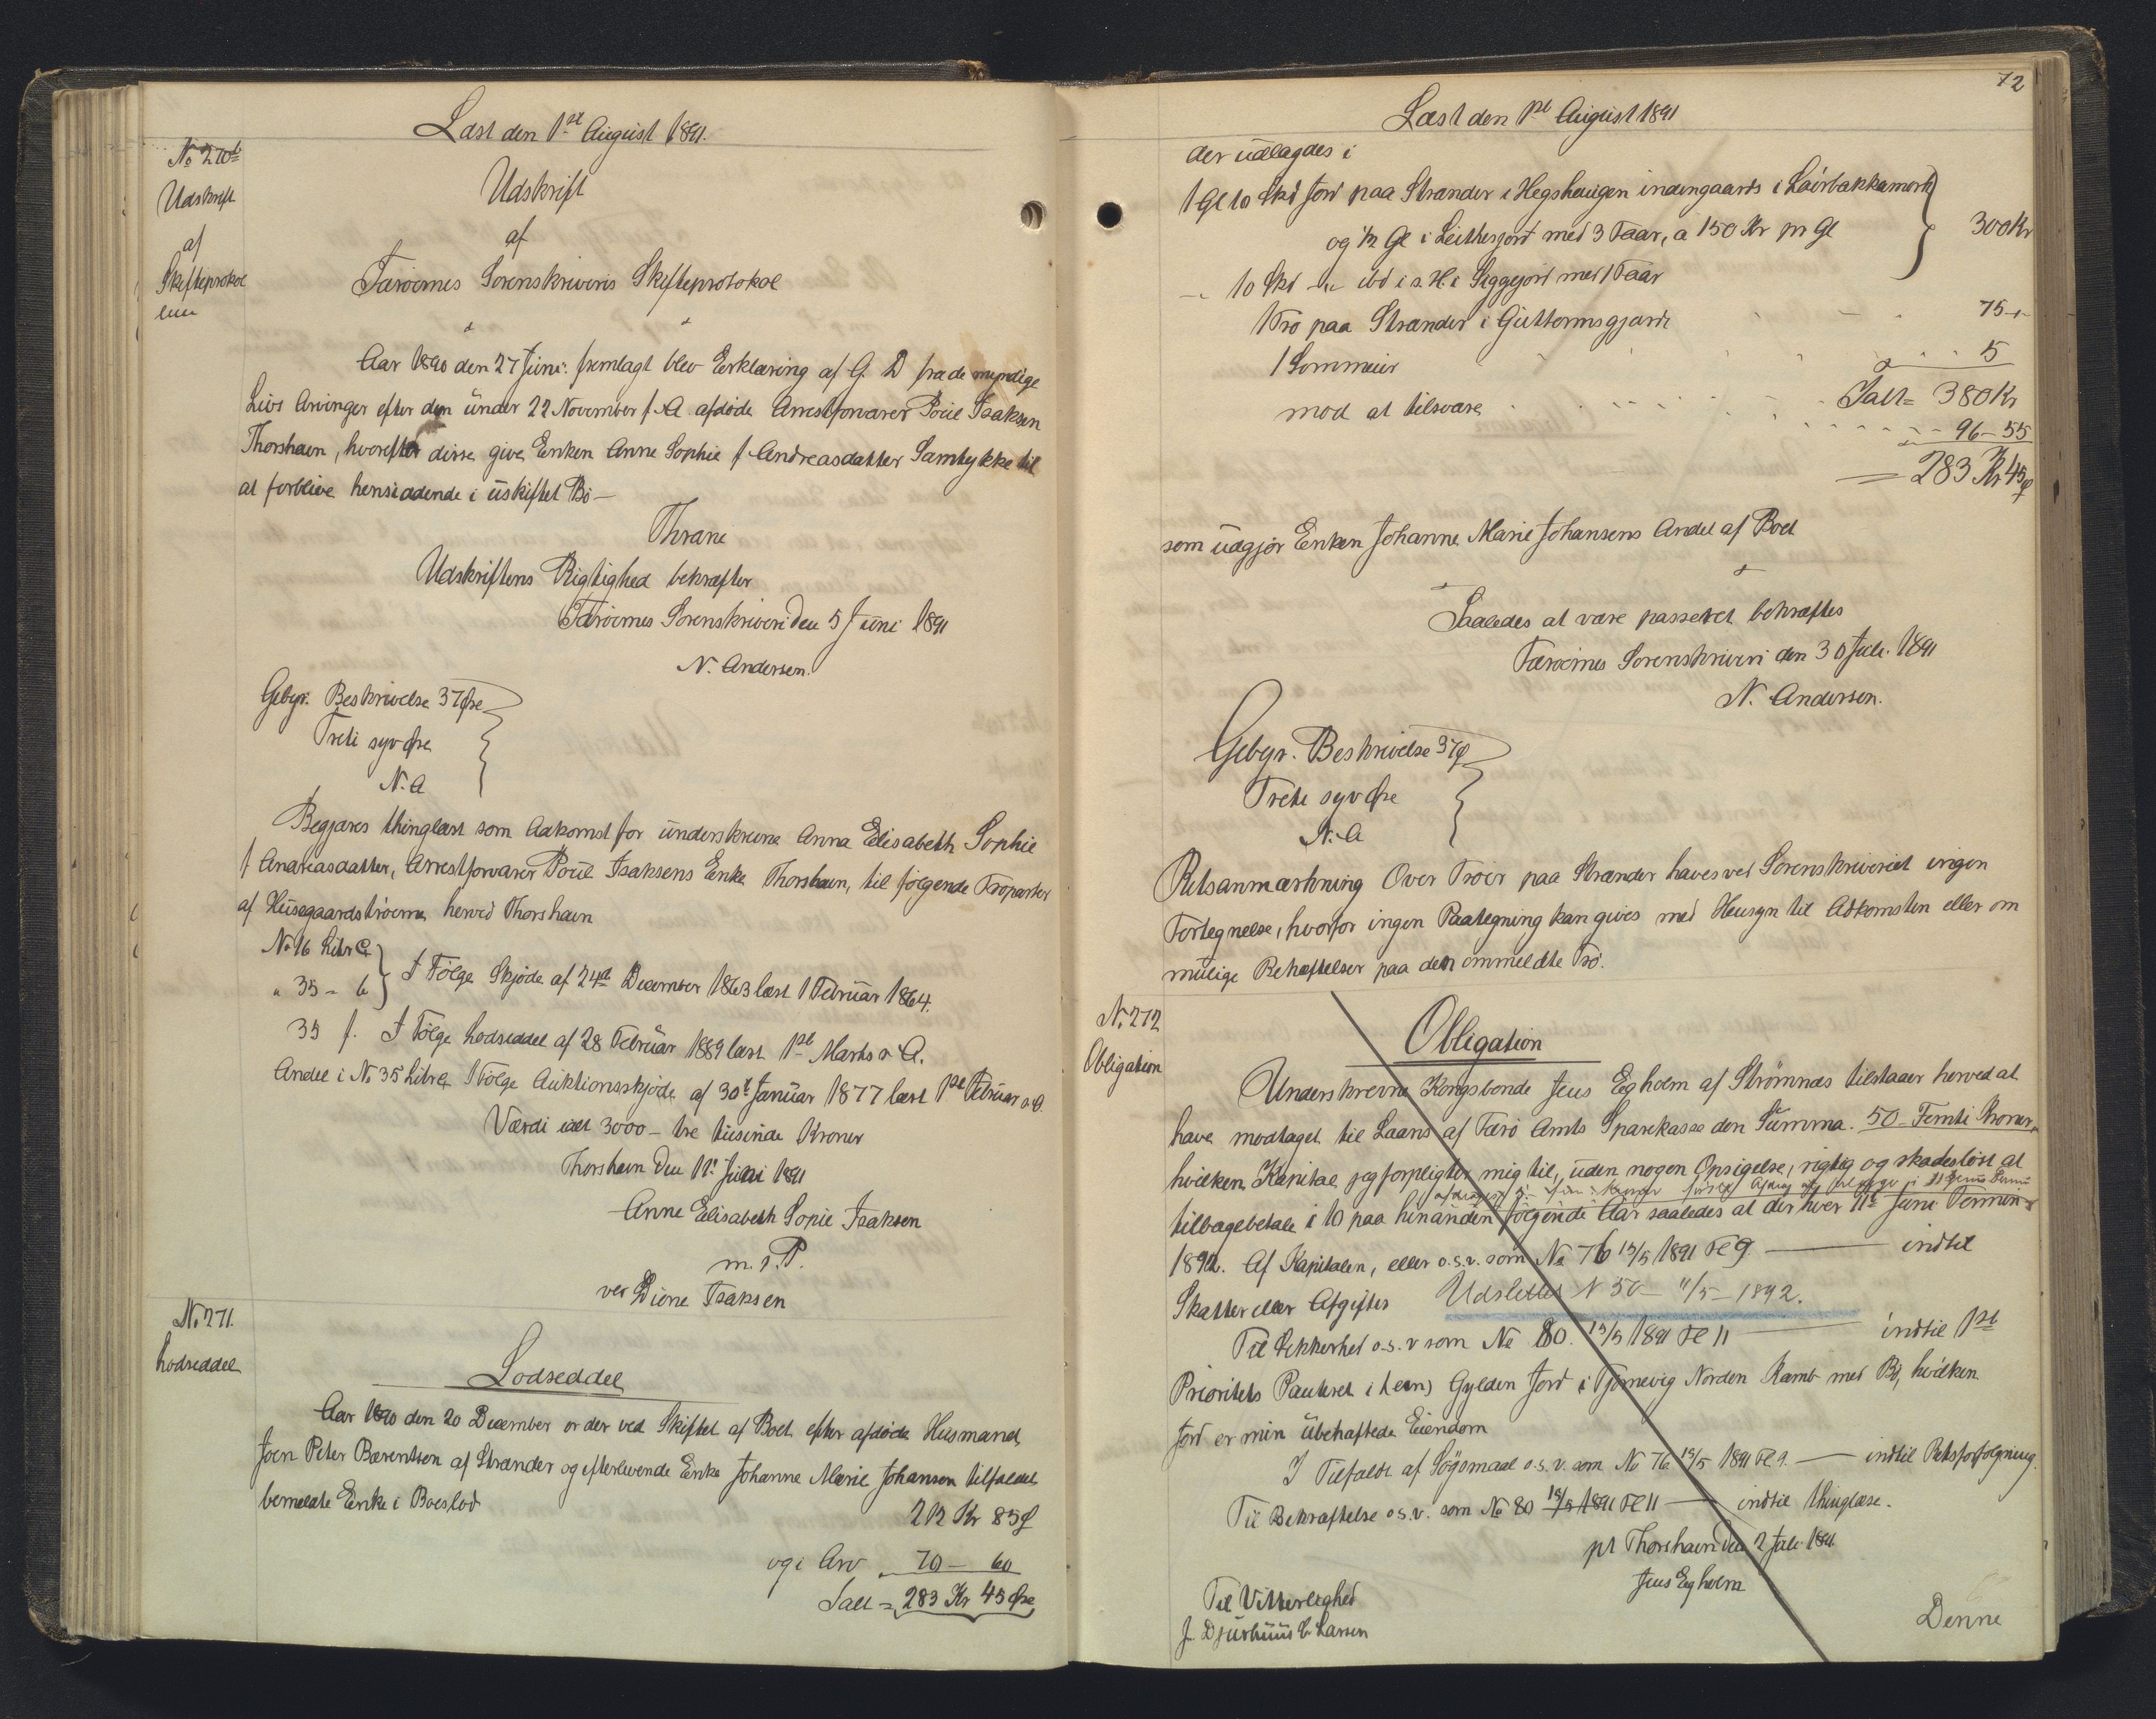 Læst den 1ste August 1891.
No 270b
Udskrift
af
Skifteprotokol
len
Udskrift
af
Færøernes Sorenskriveris Skifteprotokol
Aar 1890 den 27 Juni: fremlagt blev Erklæring af G. D fra de myndige
Livs Arvinger efter den under 22 November f. A. afdøde Arrestforvarer Poul Isaksen
Thorshavn, hvorefter disse give Enken Anne Sophie f. Andreasdatter Samtykke til
at forblive hensiddende i uskiftet Bo —
Thrane
Udskriftens Rigtighed bekræfter
Færøernes Sorenskriveri den 5 Juni 1891
N. Andersen.
Gebyr. Beskrivelse 37 Øre
Treti syv Øre
N. A
Begjæres thinglæst som Adkomst for underskrevne Anna Elisabeth Sophie
f Andreasdatter, Arrestforvarer Poul Isaksens Enke Thorshavn, til følgende Troparter
af Husegaardstrøerne herved Thorshavn
No 16 Litr C
" 35 - b } I Følge Skjøde af 24de December 1863 læst 1 Februar 1864.
35 f. I Følge Lodseddel af 28 Februar 1889 læst 1ste Marts s. A.
Andel i No 35 Litr e I Følge Auktionsskjøde af 30te Januar 1877 læst 1ste Februar s. A.
Værdi ialt 3000 – tre tusinde Kroner
Thorshavn den 11 Juni 1891
Anne Elisabeth Sopie Isaksen
m. f. P.
ved Diene Isaksen
No 271.
Lodseddel
Lodseddel
Aar 1890 den 20 December er der ved Skiftet af Boet efter afdøde Husmand
Joen Peter Barentsen af Strænder og efterlevende Enke Johanne Marie Johansen tilfaldet
bemeldte Enke i Boeslod
212 Kr 85 Ø
og i Arv „ 70 — 60
Ialt = 283 Kr 45 Øre
72
Læst den 1ste August 1891
der udlagdes i
1 Gl 10 Skd Jord paa Strænder i Hegshaugen indengaards i Lairbakkamork
og ½ Gl i Leithesjord med 3 Faar, a 150 Kr pr Gl } 300 Kr
— 10 Skd — ibd i s. H. i Siggejord med 1 Faar
1 Trø paa Strænder i Guttormsgjærde 75 –
1 Sommeier 5
Ialt = 380 Kr
mod at tilsvare 96 – 55
= 283 Kr 45 Ø
som udgjør Enken Johanne Marie Johansens Andel af Boet
Saaledes at være passeret bekræftes
Færøernes Sorenskriveri den 30 Juli 1891
N. Andersen.
Gebyr. Beskrivelse 37 Ø
Treti syv Øre
N. A
Retsanmærkning Over Trøer paa Strænder haves ved Sorenskriveriet ingen
Fortegnelse, hvorfor ingen Paategning kan gives med Hensyn til Adkomsten eller om
mulige Behæftelser paa den ommeldte Trø.
No 272
Obligation
Obligation
Underskrevne Kongsbonde Jens Egholm af Strømnæs tilstaaer herved at
have modtaget til Laans af Færø Amts Sparekasse den Summa. 50 – Femti Kroner,
hvilken Kapital jeg forpligter mig til, uden nogen Opsigelse, rigtig og skadesløst at
tilbagebetale i 10 paa hinanden følgende Aar saaledes at der hver 11te Juni Termin
1892. Af Kapitalen, eller o.s.v. som No 76 15/5 1891 Fl 9 — indtil
Skatter eller Afgifter Udslettet N 50 – 11/5 – 1892.
Til Sikkerhed o.s.v som No 80. 15/5 1891 Fl 11 — indtil 1ste
Prioritets Panteret i 1 (een) Gylden Jord i Tjørnevig Norden Kamb med Bø, hvilken
Jord er min ubehæftede Eiendom
I Tilfælde af Søgsmaal o.s.v. som No 76 15/5 1891 Fl 9. — indtil Retsforfølgning.
Til Bekræftelse o.s.v. som No 80 15/5 1891 Fl 11 — indtil thinglæse.
pt Thorshavn den 2 Juli 1891
Jens Egholm
Til Vitterlighed
J. Djurhuus C. Larsen
Denne